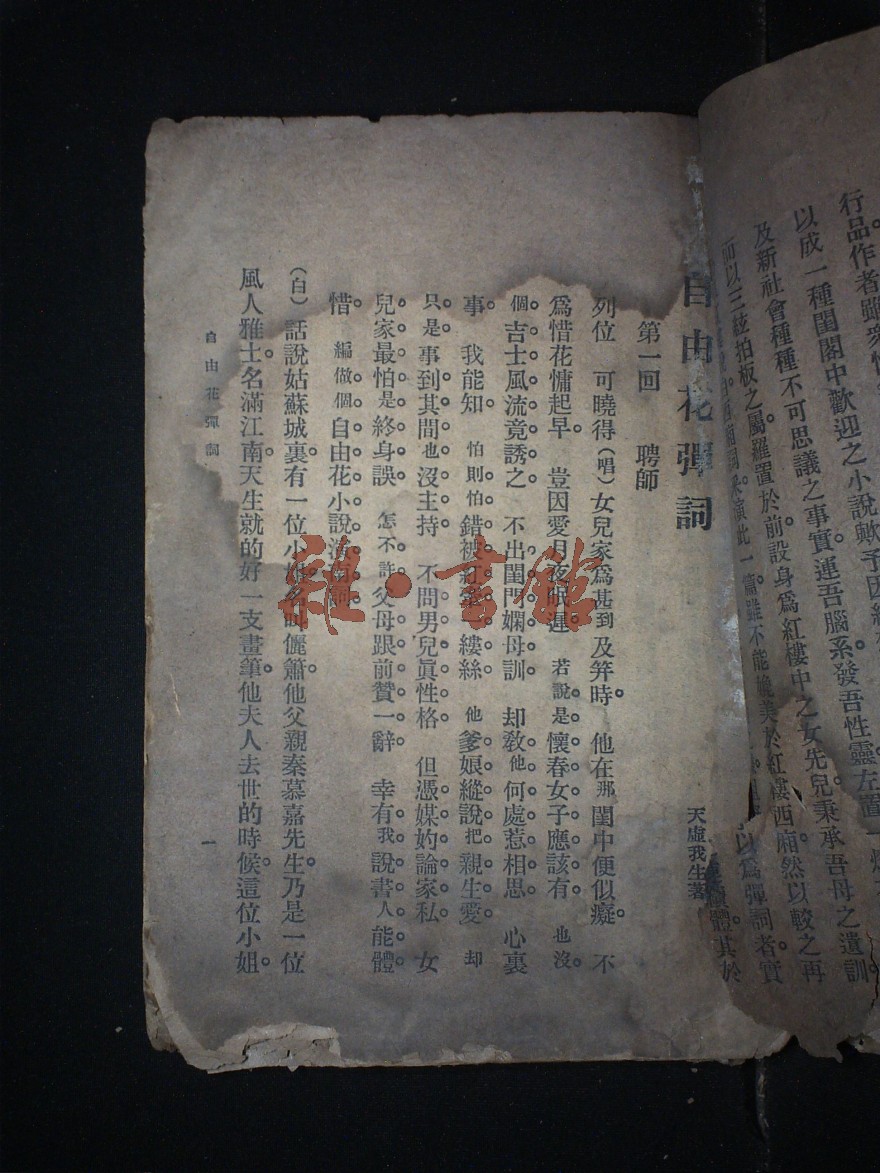 行品作者雖衆
以成一種閨閣中歡迎之小說歟予因
及新社會種種不可思議之事實運吾腦系發吾性靈左置一
而以三絃拍板之屬羅置於前設身爲紅樓中之女先兒秉承吾母之遺訓
演此一篇雖不能媲美於紅樓西廂然以較之再
以爲彈詞者實
體其於
自由花彈詞
天虛我生著
第一回　聘師
列位　可曉得(唱)女兒家爲甚到及笄時。他在那閨中便似癡。不
爲惜花慵起早　豈因愛月夜眠遲　若說是懷春女子應該有　也沒
個。吉士風流竟誘之　不出閨門嫻母訓　却敎他何處惹相思　心裏
事　我能知　怕則怕錯被紅絲一縷絲　他爹娘縱說把親生愛　却
只是事到其間也沒主持　不問男兒眞性格　但憑媒妁論家私　女
兒家最怕是終身誤　怎不許父母跟前贊一辭　幸有我說書人能體
惜　編做個自由花小說演南詞
(白)話說姑蘇城裏有一位小姐名叫儷簫他父親秦慕嘉先生乃是一位
風人雅士名滿江南天生就的好一支畫筆他夫人去世的時候這位小姐
自由花彈詞
一
雜·書館